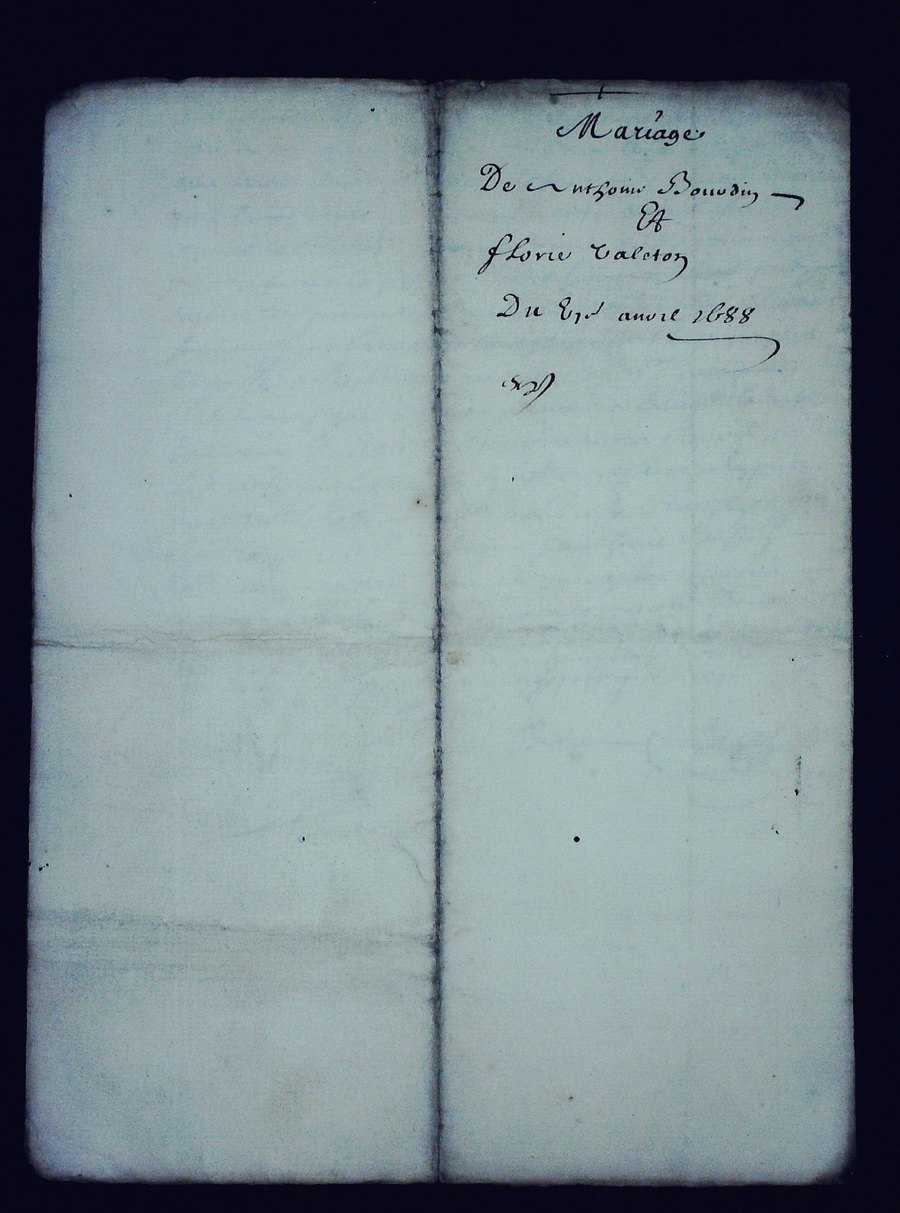 Mariage
De Anthoine Bourdin
Et
fleorie valeton
Du avril 1688